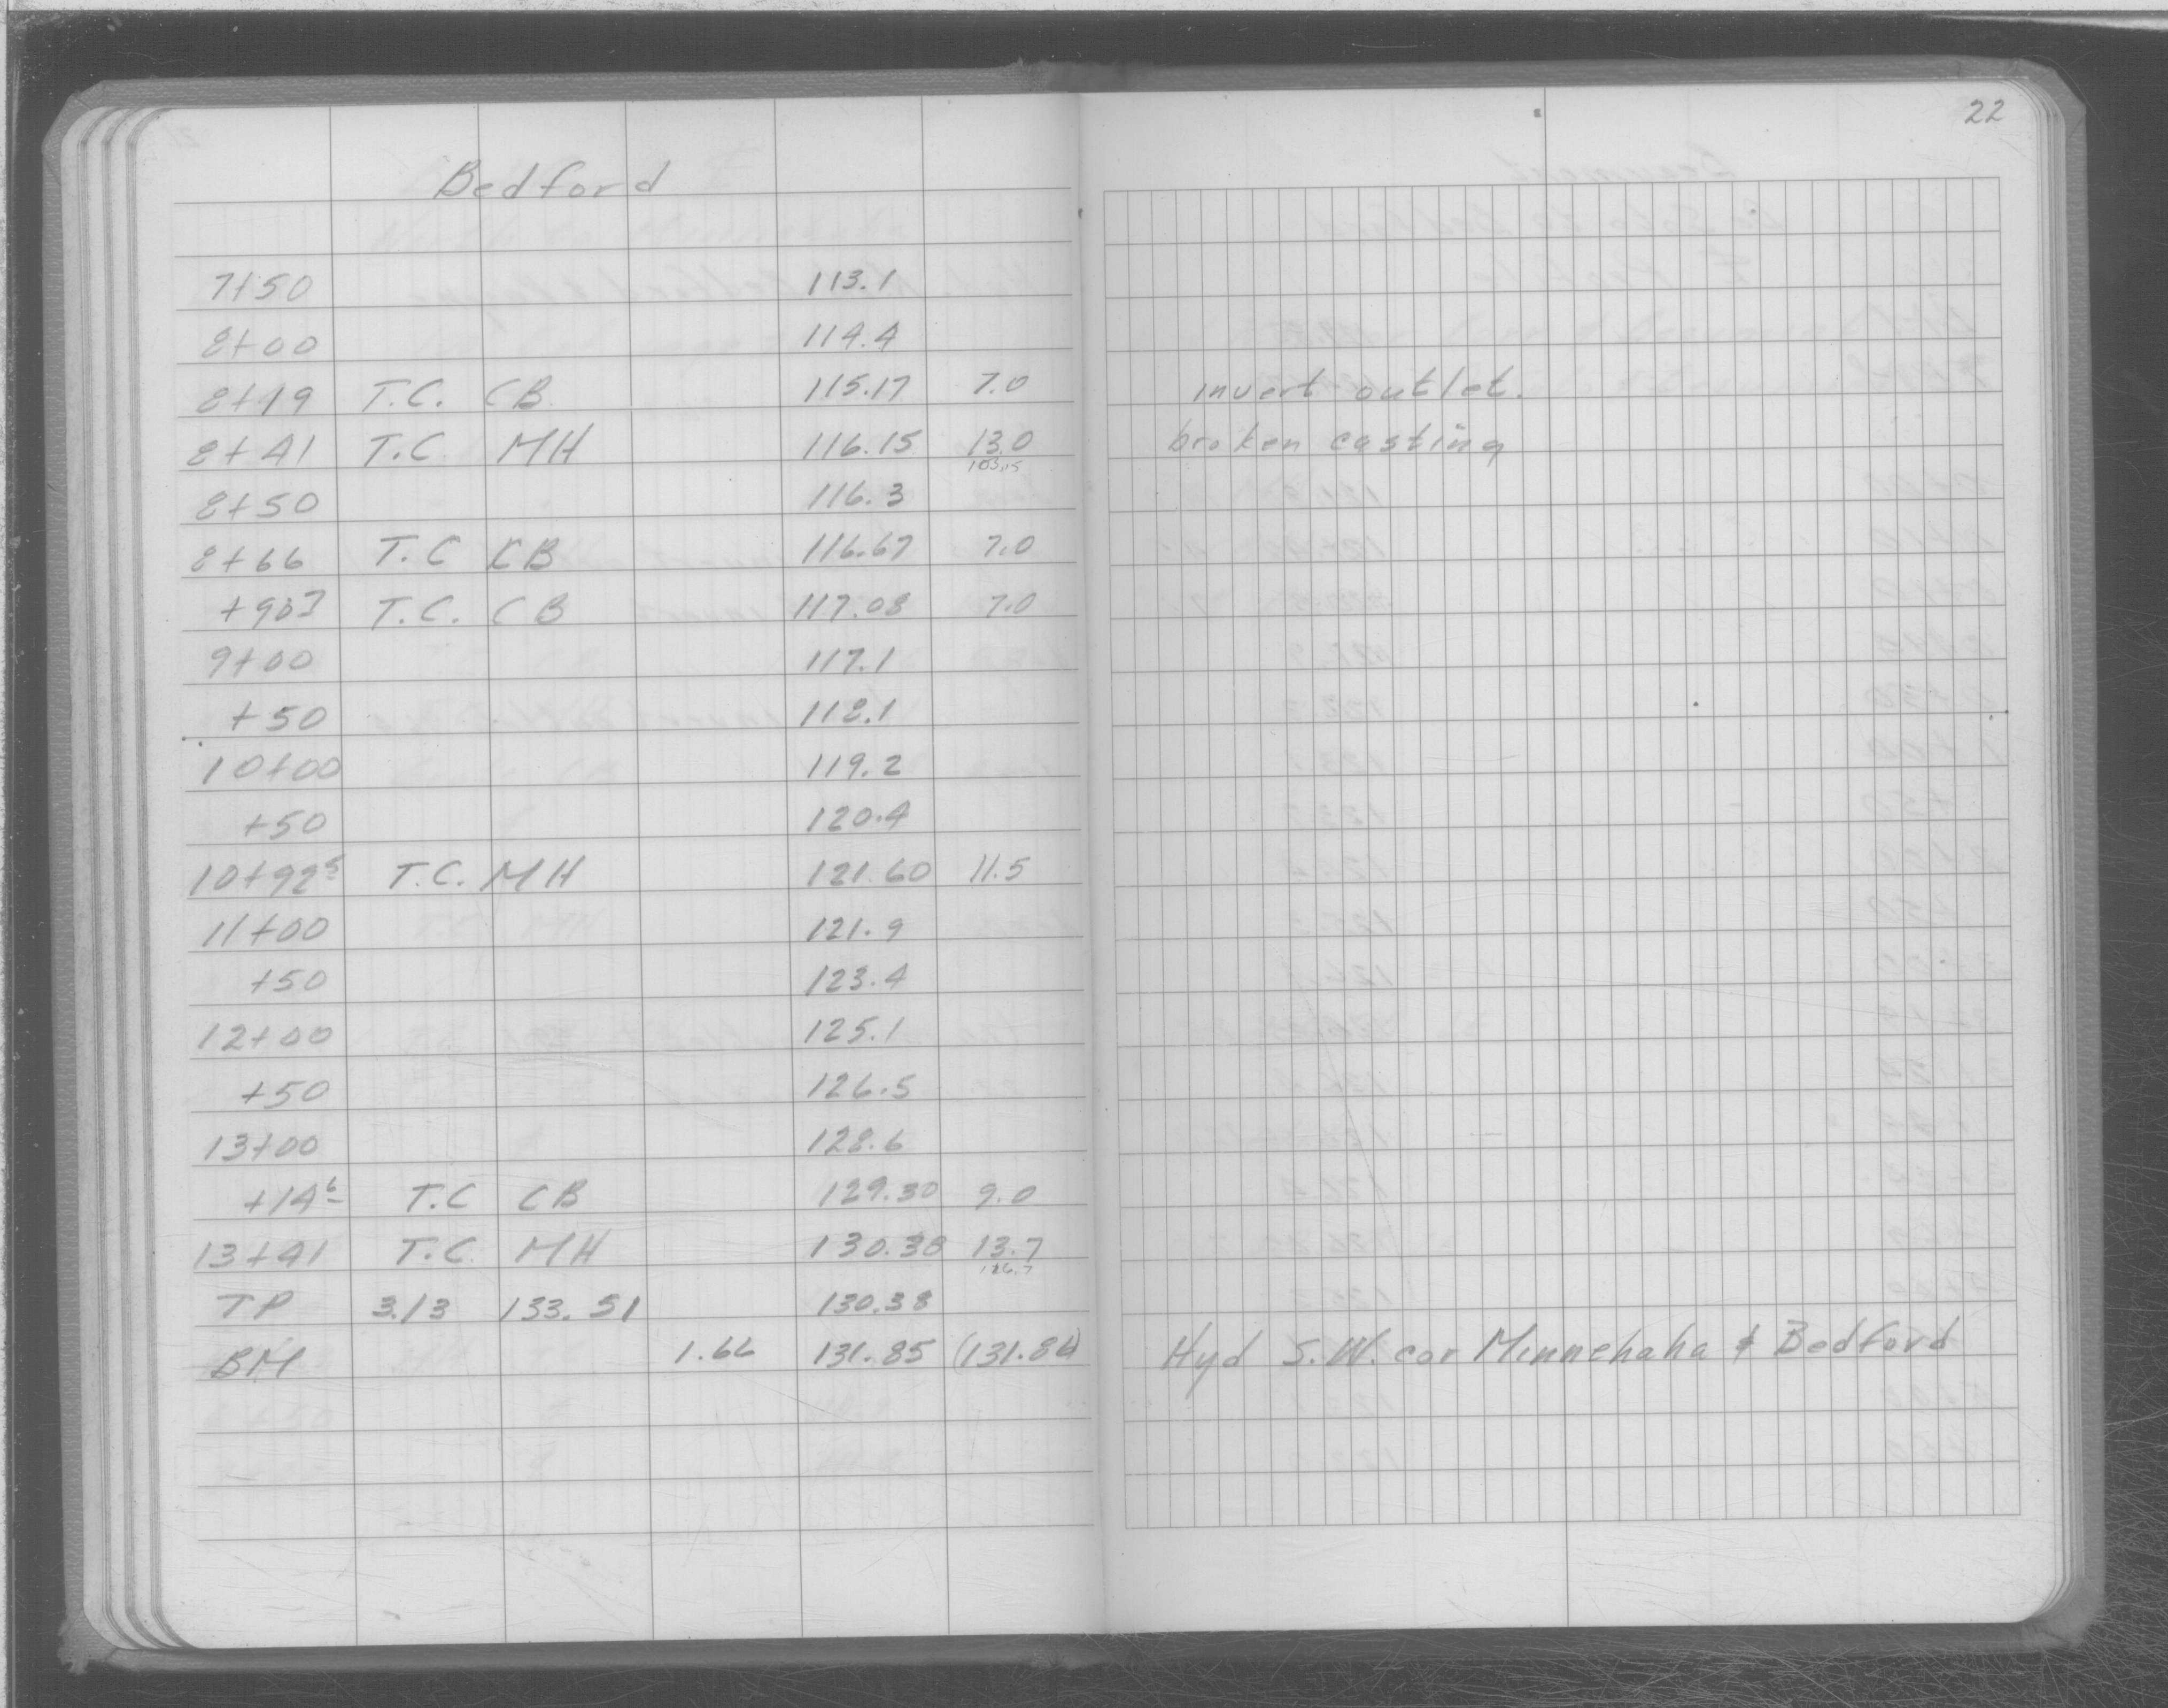 22
Bedford
7+50 113.1
8+00 114.4
8+19 T.C. CB 115.17 7.0 invert outlet.
8+41 T.C MH 116.15 13.0 broken casting
103.15
8+50 116.3
8+66 T.C CB 116.67 7.0
+90⁷ T.C. CB 117.08 7.0
9+00 117.1
+50 118.1
10+00 119.2
+50 120.4
10+92⁵ T.C. MH 121.60 11.5
11+00 121.9
+50 123.4
12+00 125.1
+50 126.5
13+00 128.6
+14⁶ T.C CB 129.30 9.0
13+41 T.C. MH 130.38 13.7
TP 3.13 133.51 130.38
BM 1.66 131.85 (131.86) Hyd S.W. cor Minnehaha & Bedford